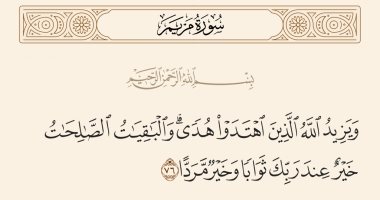 سُورَةُ مَرْيَمَ
بِسْمِ اللَّهِ الرَّحْمَٰنِ الرَّحِيمِ
وَيَزِيدُ اللَّهُ الَّذِينَ اهْتَدَوْا هُدًى ۗ وَالْبَاقِيَاتُ الصَّالِحَاتُ
خَيْرٌ عِندَ رَبِّكَ ثَوَابًا وَخَيْرٌ مَّرَدًّا ٧٦